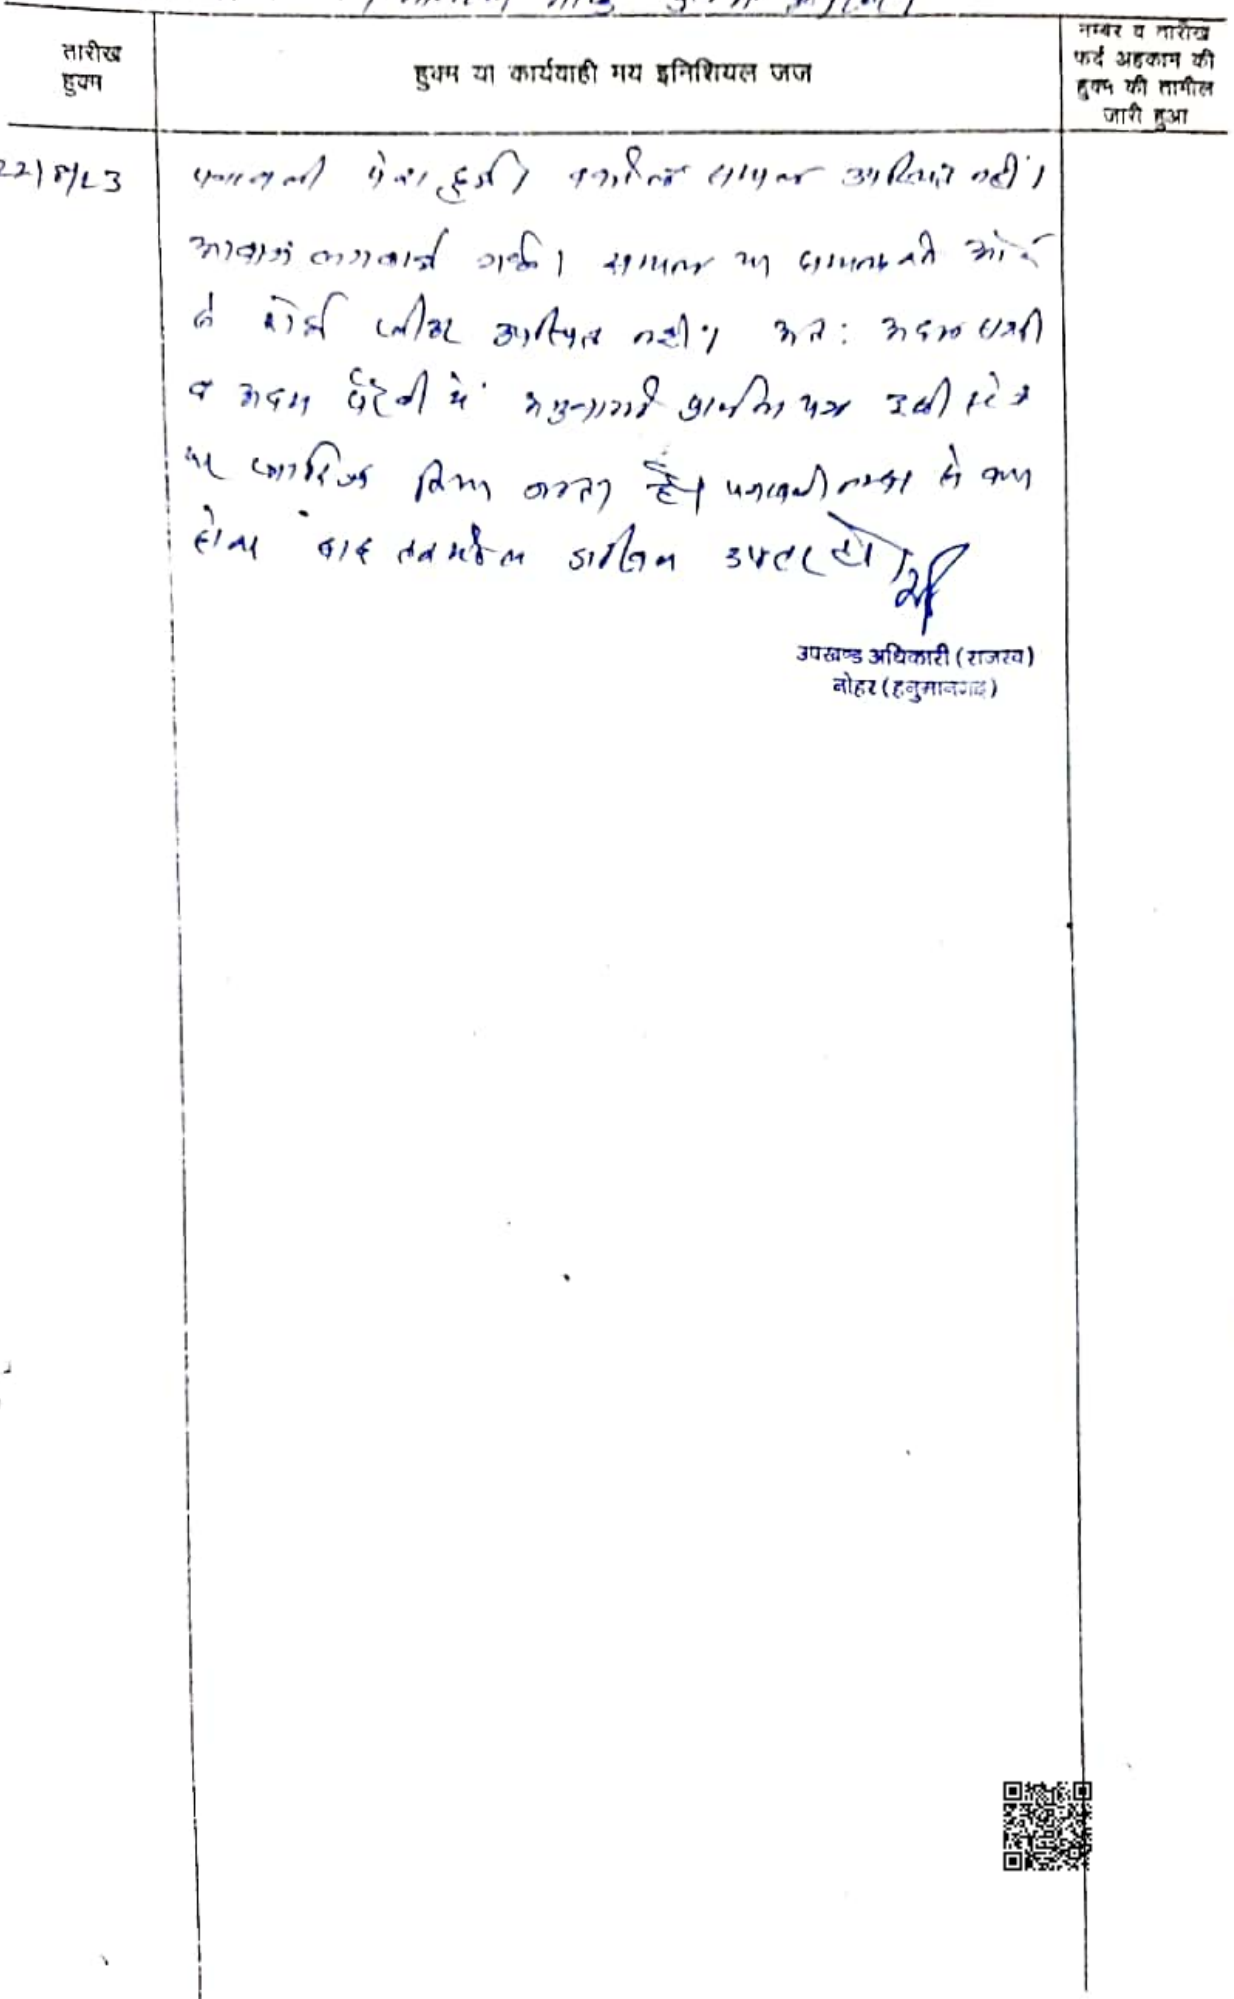 तारीख
हुक्म
हुक्म या कार्यवाही मय इनिशियल जज
नम्बर व तारीख
फर्द अहकाम की
हुक्म की तामील
जारी हुआ
22/8/23
पत्रावली पेश हुई। वकील सायल उपस्थित नहीं।
आवाज लगवाई गई। सायल या सायल की ओर
से कोई प्लीडर उपस्थित नहीं। अतः अदम हाजरी
व अदम पैरवी में प्रार्थना पत्र इसी स्टेज
पर खारिज किया जाता है। पत्रावली नम्बर से कम
होकर बाद तकमील दाखिल दफ्तर हो।
उपखण्ड अधिकारी (राजस्व)
नोहर (हनुमानगढ़)